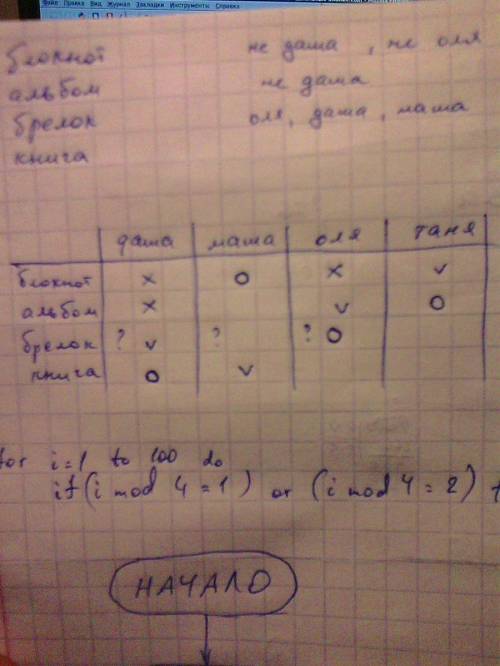 Файл Правка Вид Журнал Закладки Инструменты Справка
блокнот не даша , не оля
альбом не даша
брелок оля, даша, маша
книга
даша маша оля таня
блокнот x o x v
альбом x v o
брелок ? v ? ? o
книга o v
for i=1 to 100 do
if (i mod 4 = 1) or (i mod 4 = 2) t
НАЧАЛО